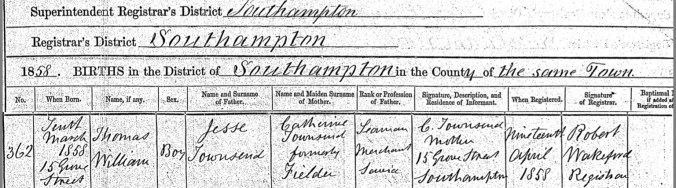 Superintendent Registrar's District Southampton
Registrar's District Southampton
1858. BIRTHS in the District of Southampton in the County of the same Town.
No. When Born. Name, if any. Sex. Name and Surname of Father. Name and Maiden Surname of Mother. Rank or Profession of Father. Signature, Description, and Residence of Informant. When Registered. Signature of Registrar. Baptismal if added Registration of
362 Tenth March 1858 15 Grove Street Thomas William Boy Jesse Townsend Catherine Townsend formerly Fielder Seaman Merchant Service C. Townsend Mother 15 Grove Street Southampton Nineteenth April 1858 Robert Wakeford Registrar